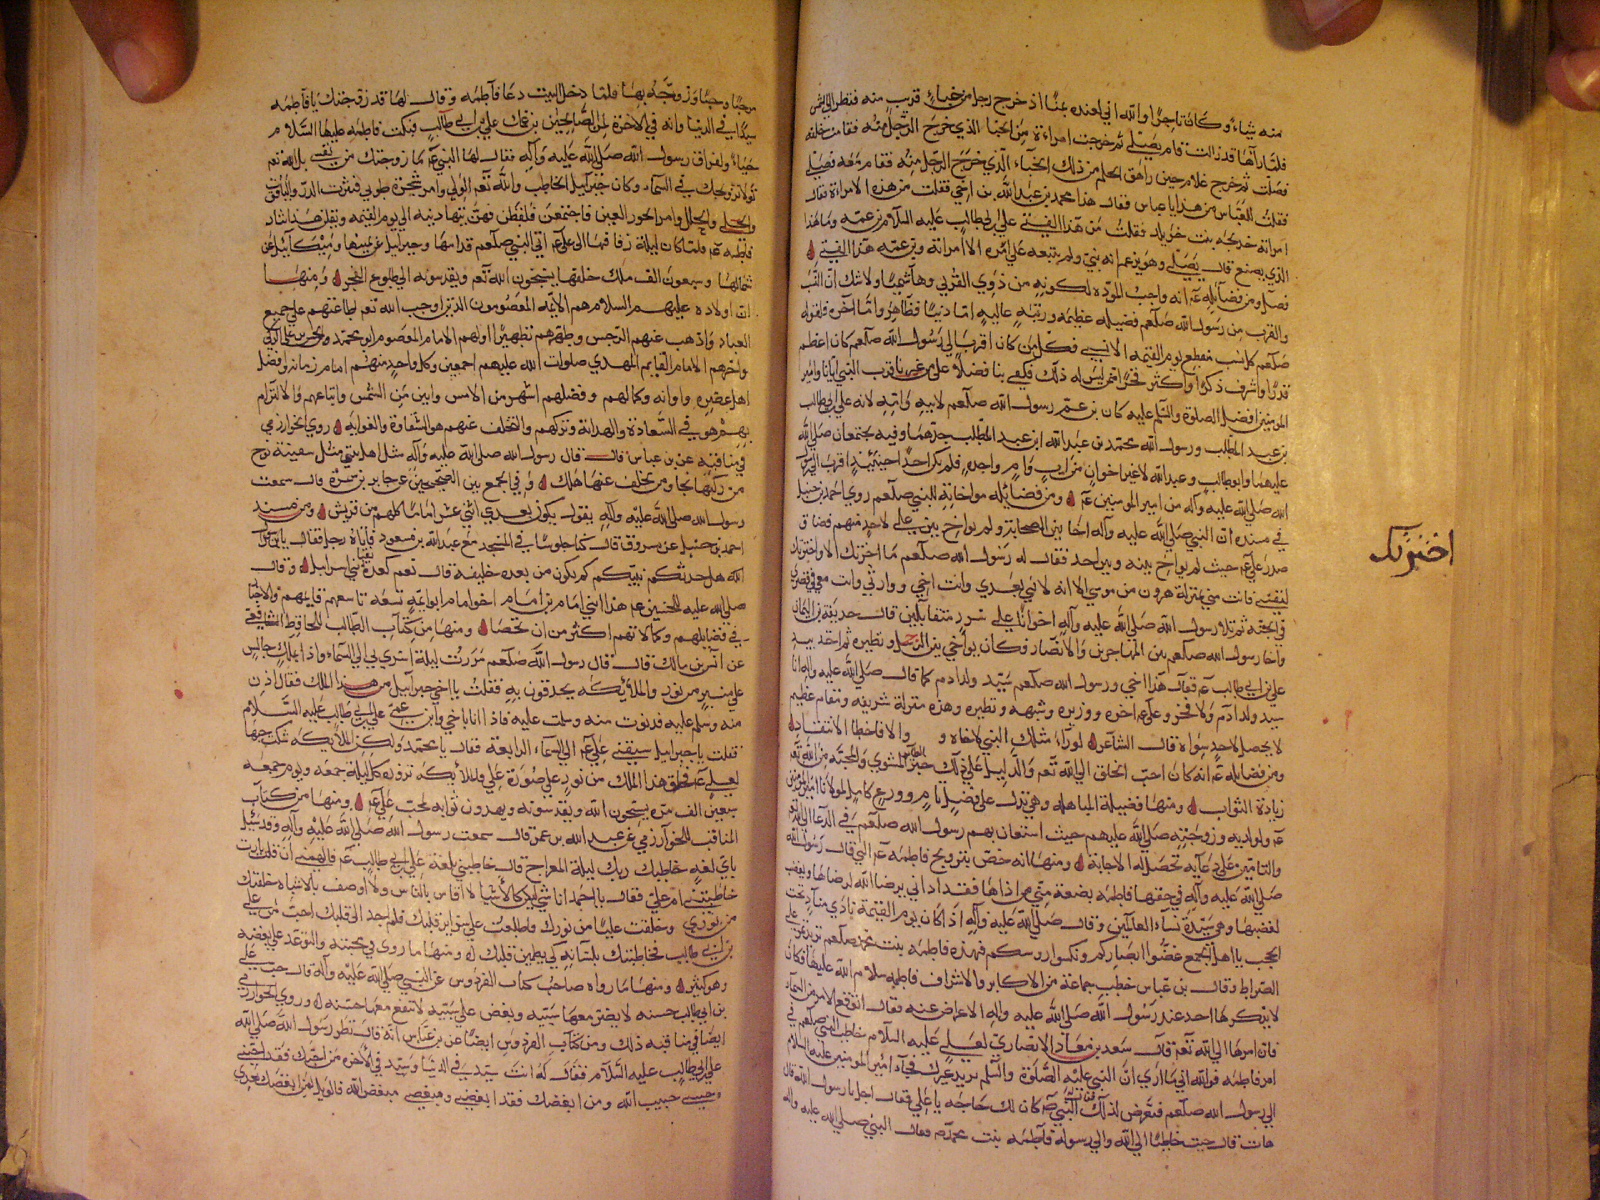 منه شياء وكان تاجرا والله اني لعنده بمنا اذ خرج رجل من خباء قريب منه فنظر الى الشمس
فلما رآها قد زالت قام يصلي ثم خرجت امراءة من الخبا الذي خرج الرجل منه فقامت خلفه
فصلت ثم خرج غلام حين راهق الحلم من ذلك الخباء الذي خرج الرجل منه فقام معه فصلى
فقلت للعباس من هذا يا عباس فقال هذا محمد بن عبد الله بن اخي فقلت من هذه الامراة قال
امراته خديجه بنت خويلد فقلت من هذا الفتى قال علي بن ابي طالب عليه السلام بن عمه وما هذا
الذي يصنع قال يصلي وهو يزعم انه نبي ولم يتبعه على امره الا امراته وبن عمه هذا الفتى
فصل ومن فضايله عم انه واجب المودة لكونه من ذوي القربى وهاشميا ولا شك ان النسب
والقرب من رسول الله صلعم فضيله عظيمه ورتبه عاليه اما دنيا فظاهر واما اخره فلقوله
صلعم كل نسب منقطع يوم القيمه الا نسبي فكل من كان اقرب الى رسول الله صلعم كان اعظم
قدرا واشرف ذكرا واكثر فخرا ممن ليس له ذلك فكفى بنا فضلا على من غيرنا قرب النبي ايانا وامير
المومنين افضل الصلوة والسلم عليه كان بن عم رسول الله صلعم لابيه وامه لانه علي بن ابي طالب
بن عبد المطلب ورسول الله محمد بن عبد الله ابن عبد المطلب جدهما وفيه يجتمعان صلى الله
عليهما وابو طالب وعبد الله لاغير اخوان من اب وام واحده فلم يكن احد حينئذ اقرب الى رسول
الله صلى الله عليه وآله من امير المومنين عم ومن فضايله مواخاته للنبي صلعم روى احمد بن حنبل
في مسنده ان النبي صلى الله عليه وآله اخا بين الصحابة ولم يواخ بين علي لاحد منهم فضاق
صدر علي عم حيث لم يواخ بينه وبين احد فقال له رسول الله صلعم ما اخرتك الا واخترتك
اخترتك
لنفسي فانت مني بمنزلة هرون من موسى الا انه لا نبي بعدي وانت اخي ووارثي وانت معي في قصري
في الجنه ثم تلا رسول الله صلى الله عليه وآله اخوانا على سرر متقابلين قال حذيفة بن اليمان
واخا رسول الله صلعم بين المهاجرين والانصار فكان يواخي بين الرجل ونظيره ثم اخذ بيد
علي بن ابي طالب عم فقال هذا اخي ورسول الله صلعم سيد ولد ادم كما قال صلى الله عليه وآله انا
سيد ولد ادم ولا فخر وعلي عم اخوه ووزيره وشبهه ونظيره وهذه منزلة شريفه ومقام عظيم
لا يحصل لاحد سواه قال الشاعر لو راى مثلك النبي لاخاه و والا فاخطا الانتقاد
ومن فضايله عم انه كان احب الخلق الى الله تعم والدليل على ذلك خبر الطاير المشوي والمحبه من الله تعم
زيادة الثواب ومنها فضيلة المباهله وهي تدل على فضل تام وورع كامل لمولانا امير المومنين
عم ولولديه وزوجته صلى الله عليهم حيث استعان بهم رسول الله صلعم في الدعا الى الله تعم
والتامين على دعايه لتحصل له الاجابة ومنها انه خص بتزويج فاطمه عم التي قال رسول الله
صلى الله عليه وآله في حقها فاطمه بضعة مني من اذاها فقد اذاني يرضا الله لرضاها ويغضب
لغضبها وهي سيدة نساء العالمين وقال صلى الله عليه وآله اذا كان يوم القيمة نادى مناد تحت
الحجب يا اهل الجمع غضوا ابصاركم ونكسوا روسكم فهذه فاطمه بنت محمد صلعم تريد تمر على
الصراط وقال بن عباس خطب جماعة من الاكابر والاشراف فاطمه سلام الله عليها فكان
لا يذكرها احد عند رسول الله صلى الله عليه وآله الا اعرض عنه وقال اتوقع الامر من السماء
فان امرها الى الله تعم قال سعد بن معاذ الانصاري لعلي عليه السلام خاطب النبي صلعم في
امر فاطمه فوالله اني ما ارى ان النبي عليه الصلوة والسلم يريد غيرك فجاء امير المومنين عليه السلام
الى رسول الله صلعم فتعرض لذلك فقال له النبي صم كان لك حاجه يا علي فقال اجل يا رسول الله قال
هات قال جيت خاطبا الى الله والى رسوله فاطمه بنت محمد صم فقال النبي صلى الله عليه وآله
مرحبا وحبا وزوجه بها فلما دخل البيت دعا فاطمه وقال لها قد زوجتك يا فاطمه
سيدا في الدنيا وانه في الآخرة لمن الصالحين بن عمك علي بن ابي طالب فبكت فاطمه عليها السلام
حياء ولفراق رسول الله صلى الله عليه وآله فقال لها النبي عم ما زوجتك من نفسي بل الله تعم
تولى تزويجك في السماء وكان جبرآئيل الخاطب والله تعم الولي وامر شجرة طوبى فنثرت الدر والياقوت
والحلي والحلل وامر الحور العين فاجتمعن فلقطن فهن يتهادينه الى يوم القيمه ويقلن هذا نثار
فاطمه عم فلما كان ليلة زفافها الى علي عم اتى النبي صلعم قدامها وجبرائيل عن يمينها وميكآئيل عن
شمالها وسبعون الف ملك خلفها يسبحون الله تعم ويقدسونه الى طلوع الفجر ومنها
ان اولاده عليهم السلام هم الائمه المعصومون الذين اوجب الله تعم طاعتهم على جميع
العباد واذهب عنهم الرجس وطهرهم تطهيرا اولهم الامام المعصوم ابو محمد
واخرهم الامام القايم المهدي صلوات الله عليهم اجمعين وكل واحد منهم امام زمانه وافضل
اهل عصره واوانه وكمالهم وفضلهم اشهر من الامس وابين من الشمس واتباعهم والالتزام
بهم هو في السعادة والهداية وتركهم والتخلف عنهم هو الشقاوة والغوايه روى الخوارزمي
في مناقبه عن بن عباس قال قال رسول الله صلى الله عليه وآله مثل اهل بيتي مثل سفينة نوح
من ركبها نجا ومن تخلف عنها هلك وفي الجمع بين الصحيحين عن جابر بن سمرة قال سمعت
رسول الله صلى الله عليه وآله يقول يكون بعدي اثنى عشر اماما كلهم من قريش ومن مسند
احمد بن حنبل عن مسروق قال كنا جلوسا في المسجد مع عبد الله بن مسعود فاتاه رجل فقال يا بن مسعود
الله هل حدثكم نبيكم كم يكون من بعده خليفة قال نعم كعدة نقباء بني اسرائيل وقال
صلى الله عليه للحسين عم هذا ابني امام بن امام اخو امام ابو ائمه تسعه تاسعهم قايمهم والاخبار
في فضايلهم وكمالاتهم اكثر من ان تحصا ومنها من كتاب الطالب للحافظ الشافعي
عن انس بن مالك قال قال رسول الله صلعم مررت ليلة اسري بي الى السماء واذا بملك جالس
على منبر من نور والملايكه يحدقون به فقلت يا اخي جبرآئيل من هذا الملك فقال ادن
منه وسلم عليه فدنوت منه وسلمت عليه فاذا انا باخي وابن عمي علي بن ابي طالب عليه السلام
فقلت يا جبرآئيل سبقني علي عم الى السماء الرابعة فقال يا محمد ولكن الملايكه شكت حبها
لعلي عم فخلق هذا الملك من نور على صورة علي فالملايكه تزوره كل ليلة جمعه ويوم جمعه
سبعين الف مره يسبحون الله ويقدسونه ويهدون ثوابه لمحب علي عم ومنها من كتاب
المناقب للخوارزمي عن عبد الله بن عمر قال سمعت رسول الله صلى الله عليه وآله وقد سئل
باي لغة خاطبك ربك ليلة المعراج قال خاطبني بلغة علي بن ابي طالب عم فالهمني ان قلت يا رب
خاطبتني ام علي فقال يا احمد انا شي ليس كالاشيا لا اقاس بالناس ولا اوصف بالاشباه خلقتك
من نوري وخلقت عليا من نورك فاطلعت على سراير قلبك فلم اجد الى قلبك احب من علي
بن ابي طالب فخاطبتك بلسانه كي يطمين قلبك ومنها ما روى في محبته والتوعد على بغضه
وهو كثير ومنها ما رواه صاحب كتاب الفردوس عن النبي صلى الله عليه وآله قال حب علي
بن ابي طالب حسنه لا يضر معها سيئه وبغض علي سيئه لا تنفع معها حسنه وروى الخوارزمي
ايضا في مناقبه ذلك ومن كتاب الفردوس ايضا عن بن عباس انه قال نظر رسول الله صلى الله
علي بن ابي طالب عليه السلام فقال له انت سيد في الدنيا وسيد في الآخره من احبك فقد احبني
وحبيبي حبيب الله ومن ابغضك فقد ابغضني ومبغضي مبغض الله فالويل لمن ابغضك بعدي